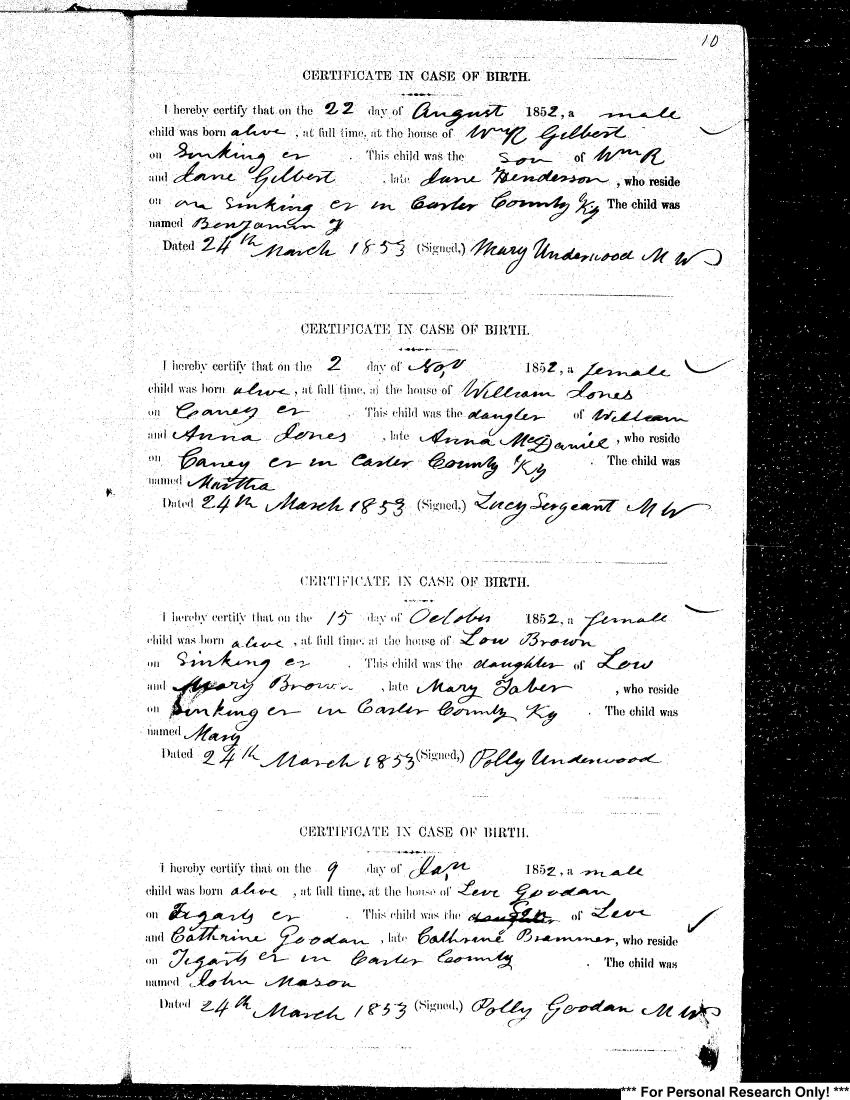 10
CERTIFICATE IN CASE OF BIRTH.
I hereby certify that on the 22 day of August 1852, a male
child was born alive, at full time, at the house of Wm R Gilbert
on Sinking cr. This child was the son of Wm R
and Jane Gilbert, late Jane Henderson, who reside
on on Sinking cr in Carter County Ky The child was
named Benjamin F
Dated 24th March 1853 (Signed,) Mary Underwood M W
CERTIFICATE IN CASE OF BIRTH.
I hereby certify that on the 2 day of Nov 1852, a female
child was born alive, at full time, at the house of William Jones
on Caney cr. This child was the daugter of William
and Anna Jones, late Anna McDaniel, who reside
on Caney cr in Carter County Ky. The child was
named Martha
Dated 24th March 1853 (Signed,) Lucy Sergeant M W
CERTIFICATE IN CASE OF BIRTH.
I hereby certify that on the 15 day of October 1852, a female
child was born alive, at full time, at the house of Low Brown
on Sinking cr. This child was the daughter of Low
and Mary Brown, late Mary Taber, who reside
on Sinking cr in Carter County Ky. The child was
named Mary
Dated 24th March 1853 (Signed,) Polly Underwood
CERTIFICATE IN CASE OF BIRTH.
I hereby certify that on the 9 day of Jan 1852, a male
child was born alive, at full time, at the house of Leve Goodan
on Tygarts cr. This child was the son of Leve
and Cathrine Goodan, late Cathrine Brammer, who reside
on Tygarts cr in Carter County. The child was
named John Mason
Dated 24th March 1853 (Signed,) Polly Goodan M W
*** For Personal Research Only! ***